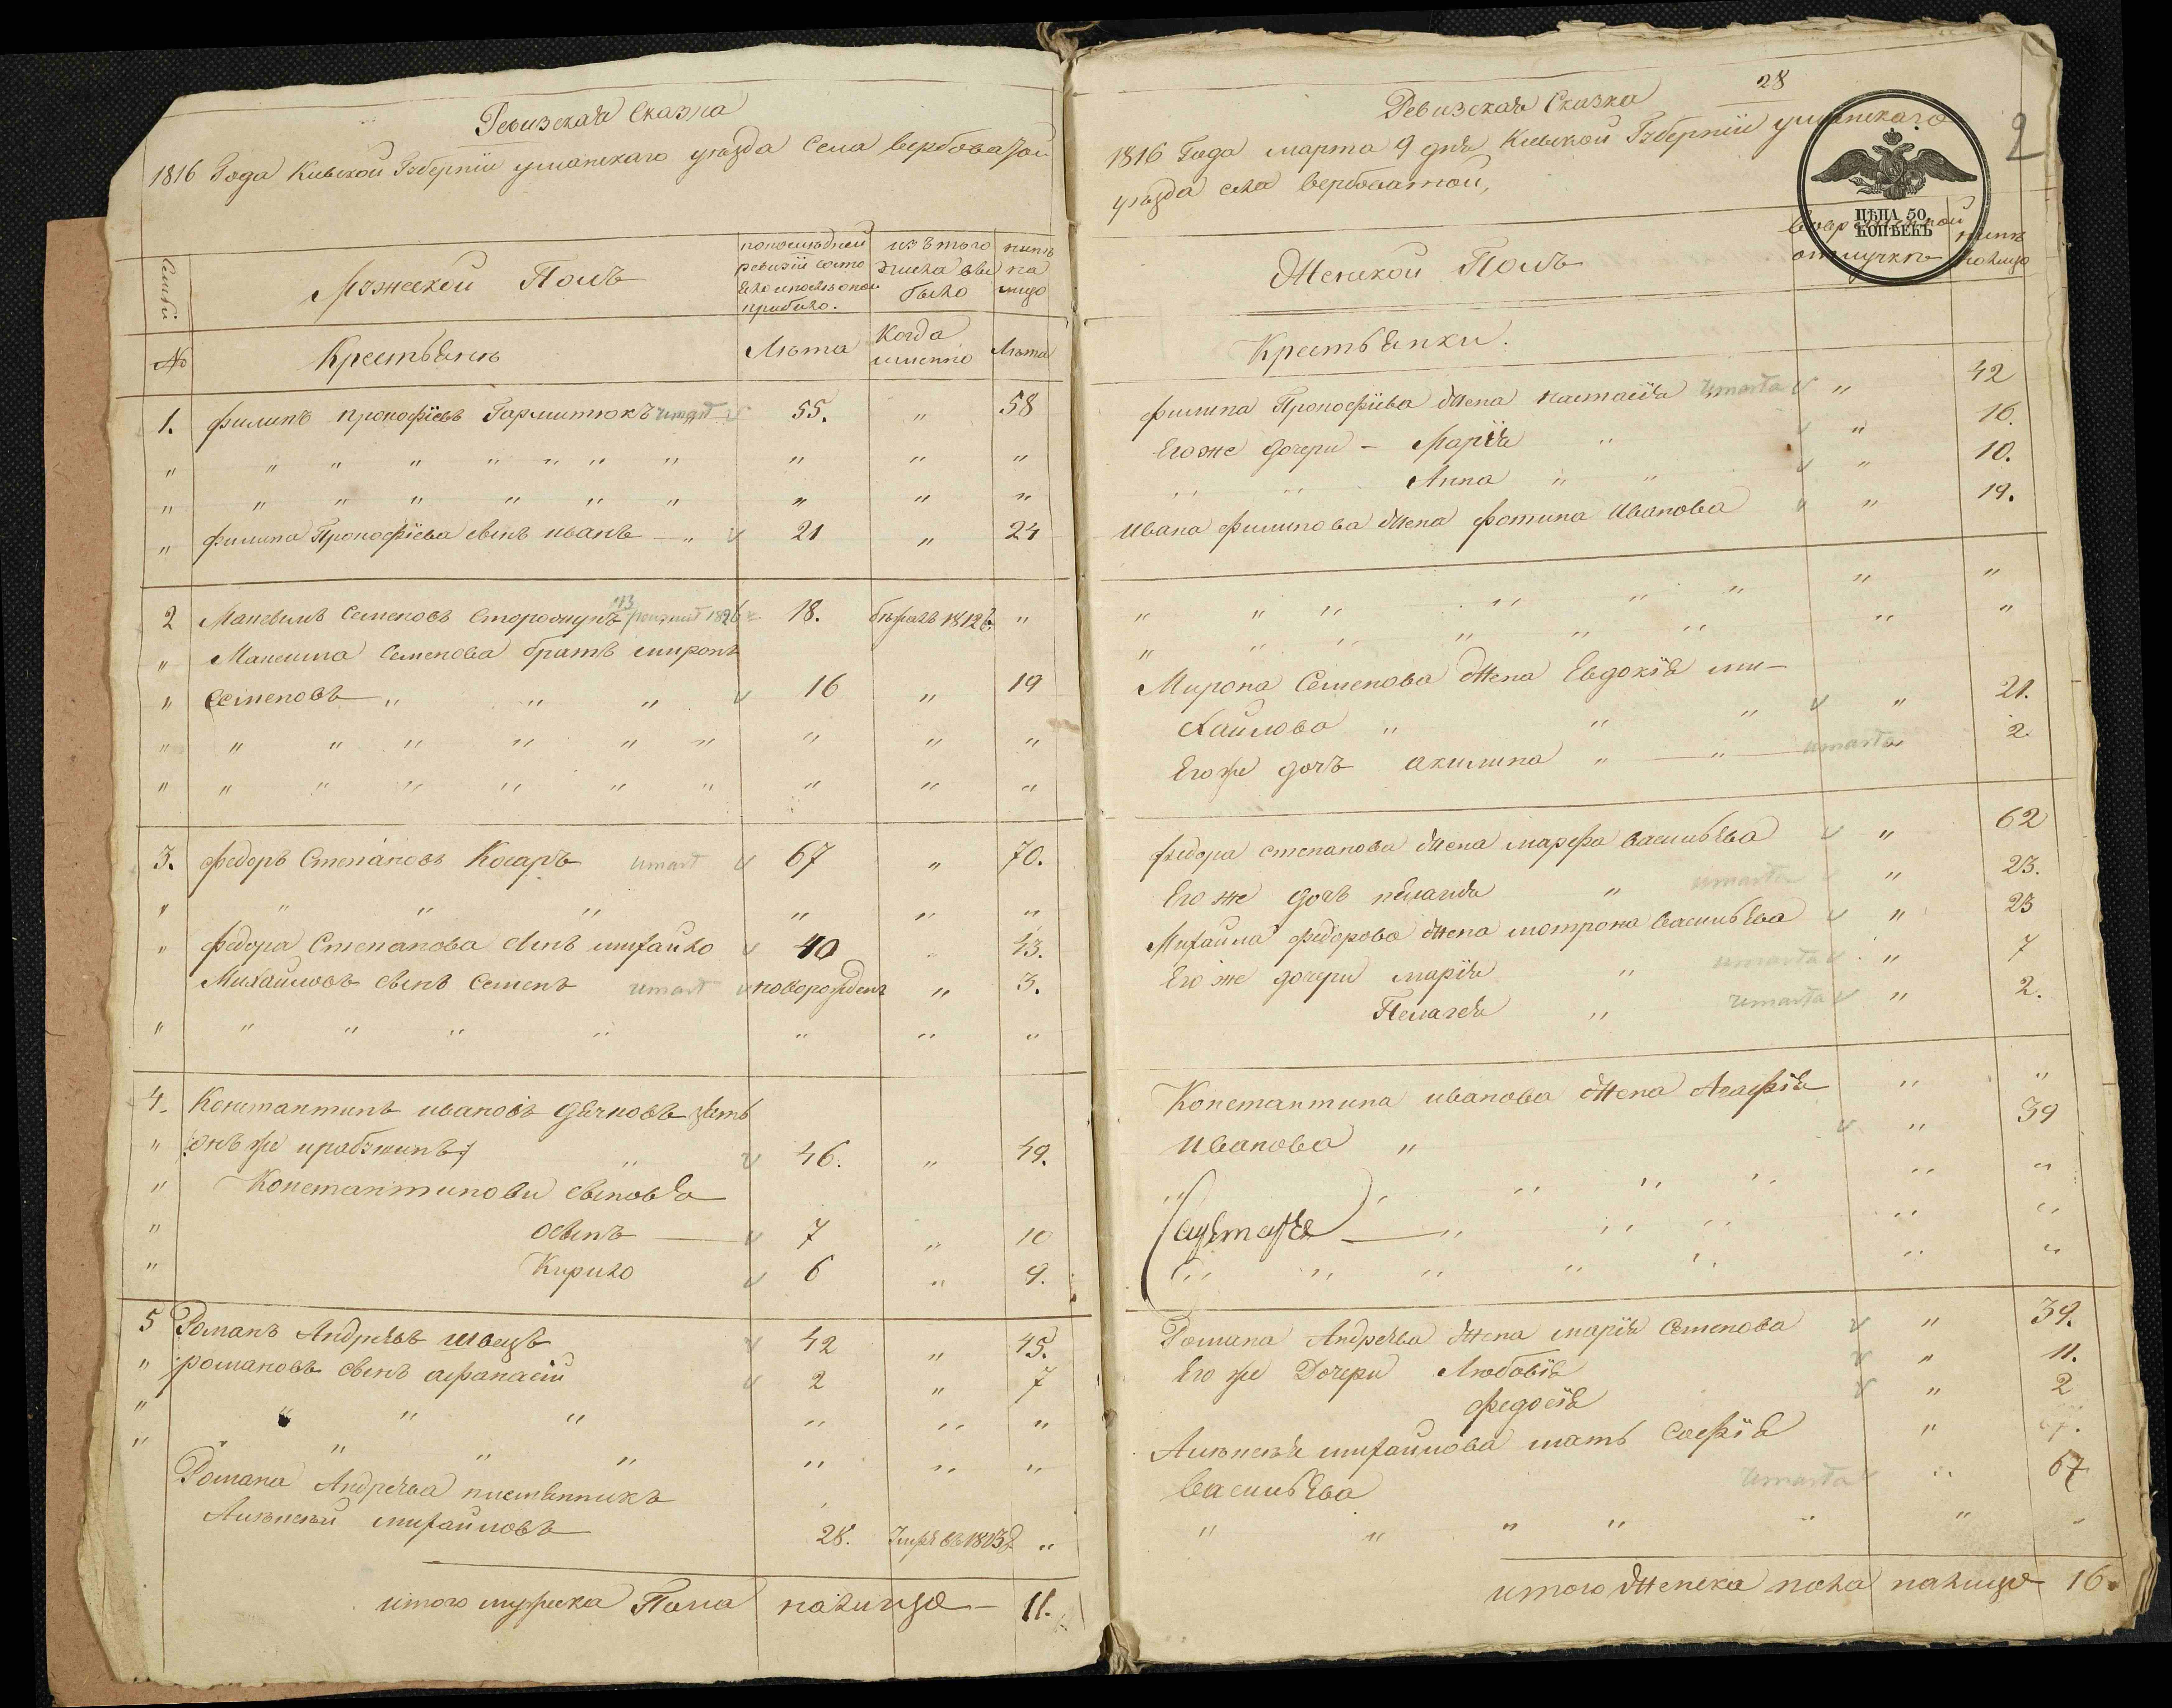 Ревизская Сказка
1816 Года Киевской Губернїи уманскаго уезда Села вербоватой
Семьи
Мужеской Полъ
попоследней ревизїи состояло и после оной прибыло.
изътого числа выбыло
нынѣ на лицо
№ Крестьяне Лѣта Когда именно Лѣта
1. филипъ прокофїевъ умарт 55. „ 58
„ „ „ „ „ „ „ „ „ „ „
„ „ „ „ „ „ „ „ „ „
„ филипа Прокофїева сынъ иванъ — „ 21 „ 24
2 Семеновъ 18. 1812 „
„ Семенова братъ миронъ
„ Семеновъ „ „ „ 16 „ 19
„ „ „ „ „ „ „ „ „ „
„ „ „ „ „ „ „ „ „ „
3. федоръ Степановъ Косаръ умарт 67 „ 70.
„ „ „ „ „ „ „
„ федора Степанова сынъ михайло 40 „ 43.
Михайловъ сынъ Семенъ умарт новорожденъ „ 3.
„ „ „ „ „ „ „ „
4. Константинъ ивановъ зять
„ онъ же 46. „ 49.
„ Константинови сыновья
„ осипъ — 7 „ 10
„ Кирило 6 „ 9.
5 Романъ Андреевъ швецъ 42 „ 45.
„ романовъ сынъ афанасій 2 „ 7
„ „ „ „ „ „ „
„ „ „ „ „ „ „
Романа Андреева племянникъ
Алексѣй михайловъ 28. „
итого мужеска Пола налицо — 11.
28
2
Ревизская Сказка
1816 Года марта 9 дня Киевской Губернїи уманскаго
уезда села вербоватой,
ЦѢНА 50 КОПѢЕКЪ
Женской Полъ
Вовременной отлучкѣ
нынѣ налицо
Крестьянки.
филипа Прокофїева жена настасїя умарта „ 42
Егоже дочери — Марїя „ „ 16.
„ „ Анна „ „ „ 10.
Ивана филипова жена фотина Иванова „ 19.
„ „ „ „ „ „ „ „
„ „ „ „ „ „ „ „
Мирона Семенова жена Евдокїя ми-
хайлова „ „ „ „ 21.
Егоже дочъ акилина „ — „ умарта 2.
федора степанова жена марфа васильева „ 62
Его же дочъ пелагия „ умарта „ 23.
Михайла федорова жена мотрона васильева „ 23
Его же дочери марїя „ умарта „ 7
Пелагея „ умарта „ 2.
Константина иванова жена Агафїя „ „
Иванова „ „ 39
„ „ „ „ „ „ „
— „ „ „ „ „
„ „ „ „ „ „ „
Романа Андреева жена марїя Семенова „ 39.
Его же Дочери Любовїя „ 11.
федосїя „ 2
Алексея михайлова мать Софїя „
васильева умарта „ 67
„ „ „ „ „ „ „
итого женска пола налицо 16